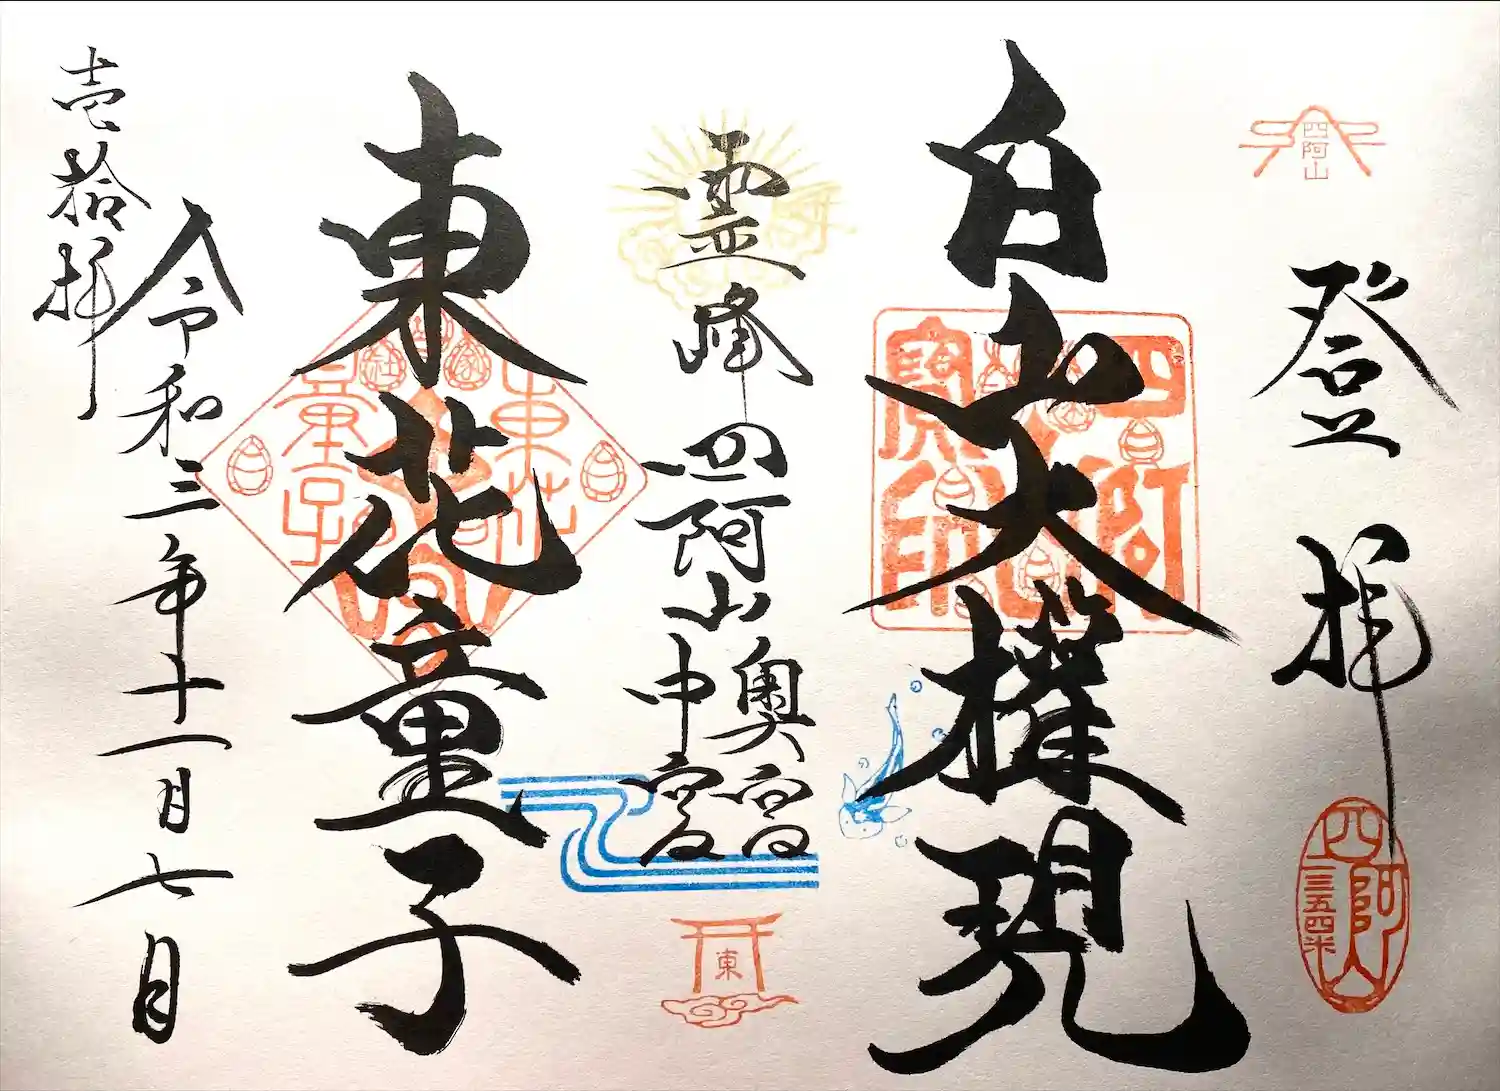 四阿山
登拝
四阿山
二三五四米
白山大權現
霊峰
四阿山
奥宮
東
東花童子
東花
童子
令和三年十一月七日
壱拾拝